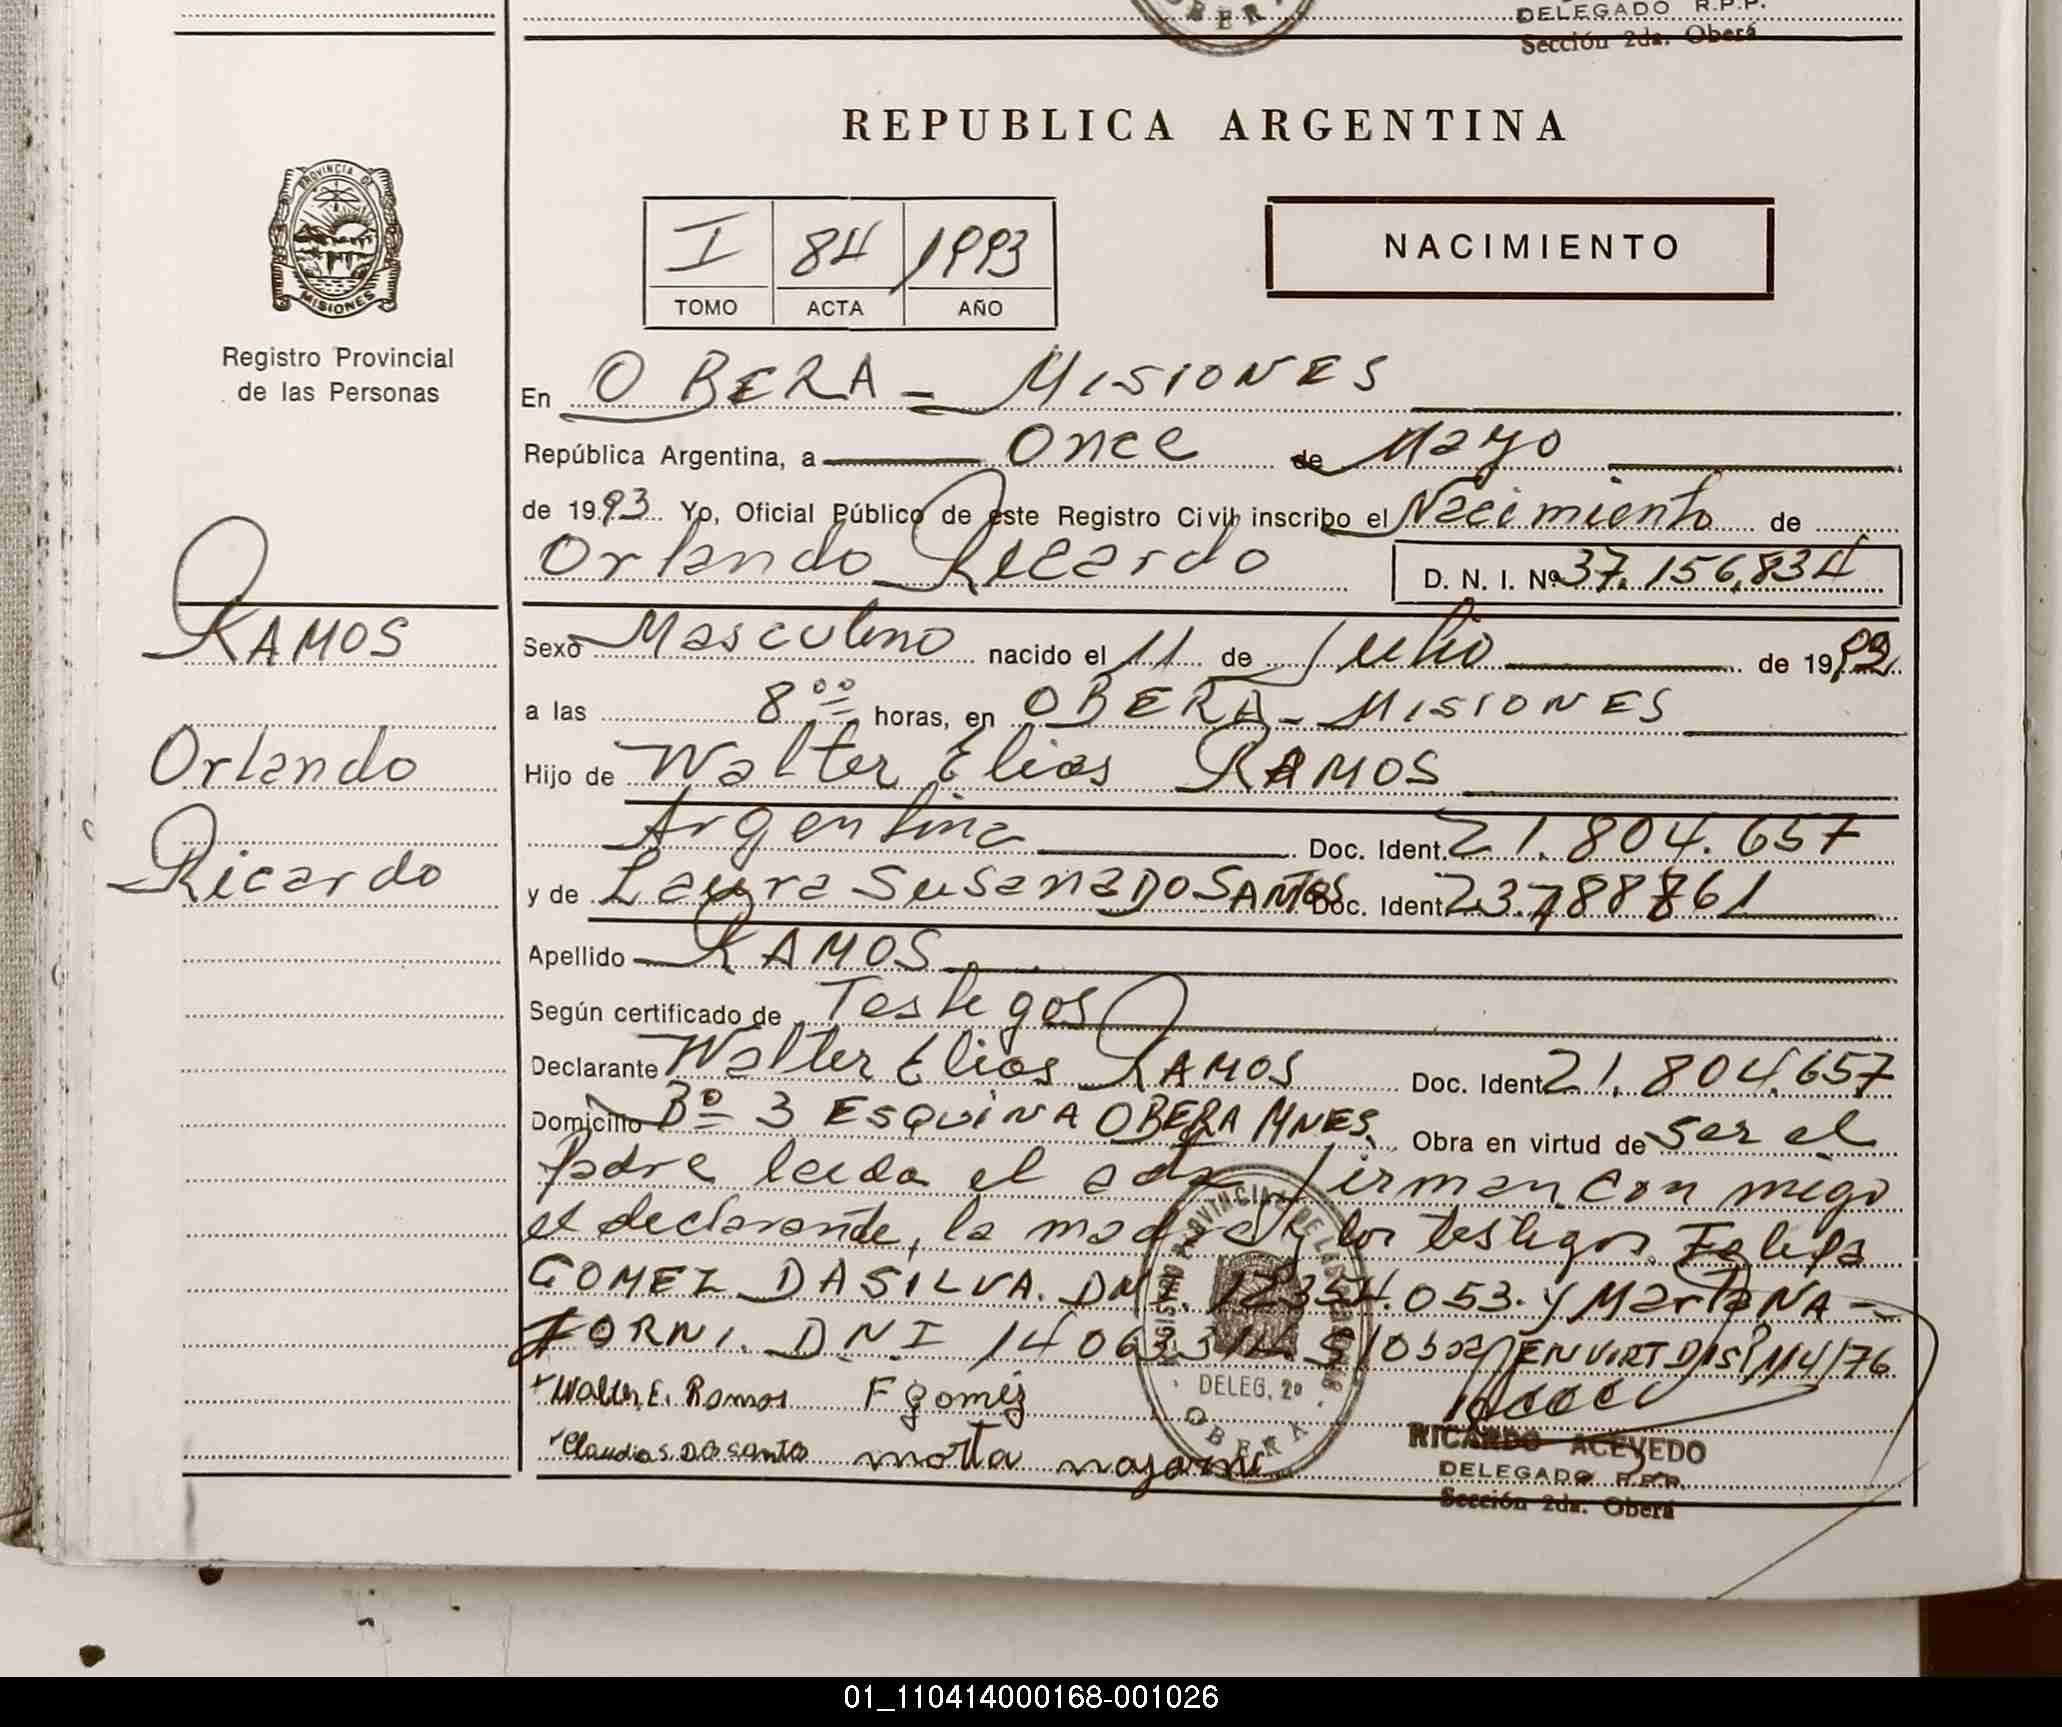 OBERA
DELEGADO R.P.P.
Sección 2da. Oberá
REPUBLICA ARGENTINA
PROVINCIA DE
MISIONES
I 84 1993
TOMO ACTA AÑO
NACIMIENTO
Registro Provincial
de las Personas
En OBERA - MISIONES
República Argentina, a Once de Mayo
de 1993 Yo, Oficial Público de este Registro Civil inscribo el Nacimiento de
Orlando Ricardo D. N. I. Nº 37.156.834
RAMOS
Orlando
Ricardo
Sexo Masculino nacido el 11 de Julio de 1992
a las 8 00 horas, en OBERA - MISIONES
Hijo de Walter Elias RAMOS
Argentina Doc. Ident. 21.804.657
y de Laura Susana DO SANTOS Doc. Ident. 23.788861
Apellido RAMOS
Según certificado de Testigos
Declarante Walter Elias RAMOS Doc. Ident. 21.804.657
Domicilio Bº 3 ESQUINA OBERA MNES. Obra en virtud de ser el
padre leida el acta firman con migo
el declarante, la madre y los testigos Felipa
GOMEZ DASILVA. DNI. 12354.053. y Marta NA-
JORNI. D.N.I 14063314 S/O5 EN VIRT DISP 114/76
Walter E. Ramos F gomez
Claudia S. DO Santo marta najorni
REGISTRO PROVINCIAL DE LAS PERSONAS
DELEG. 2º
OBERA
RICARDO ACEVEDO
DELEGADO R.P.P.
Sección 2da. Oberá
01_110414000168-001026